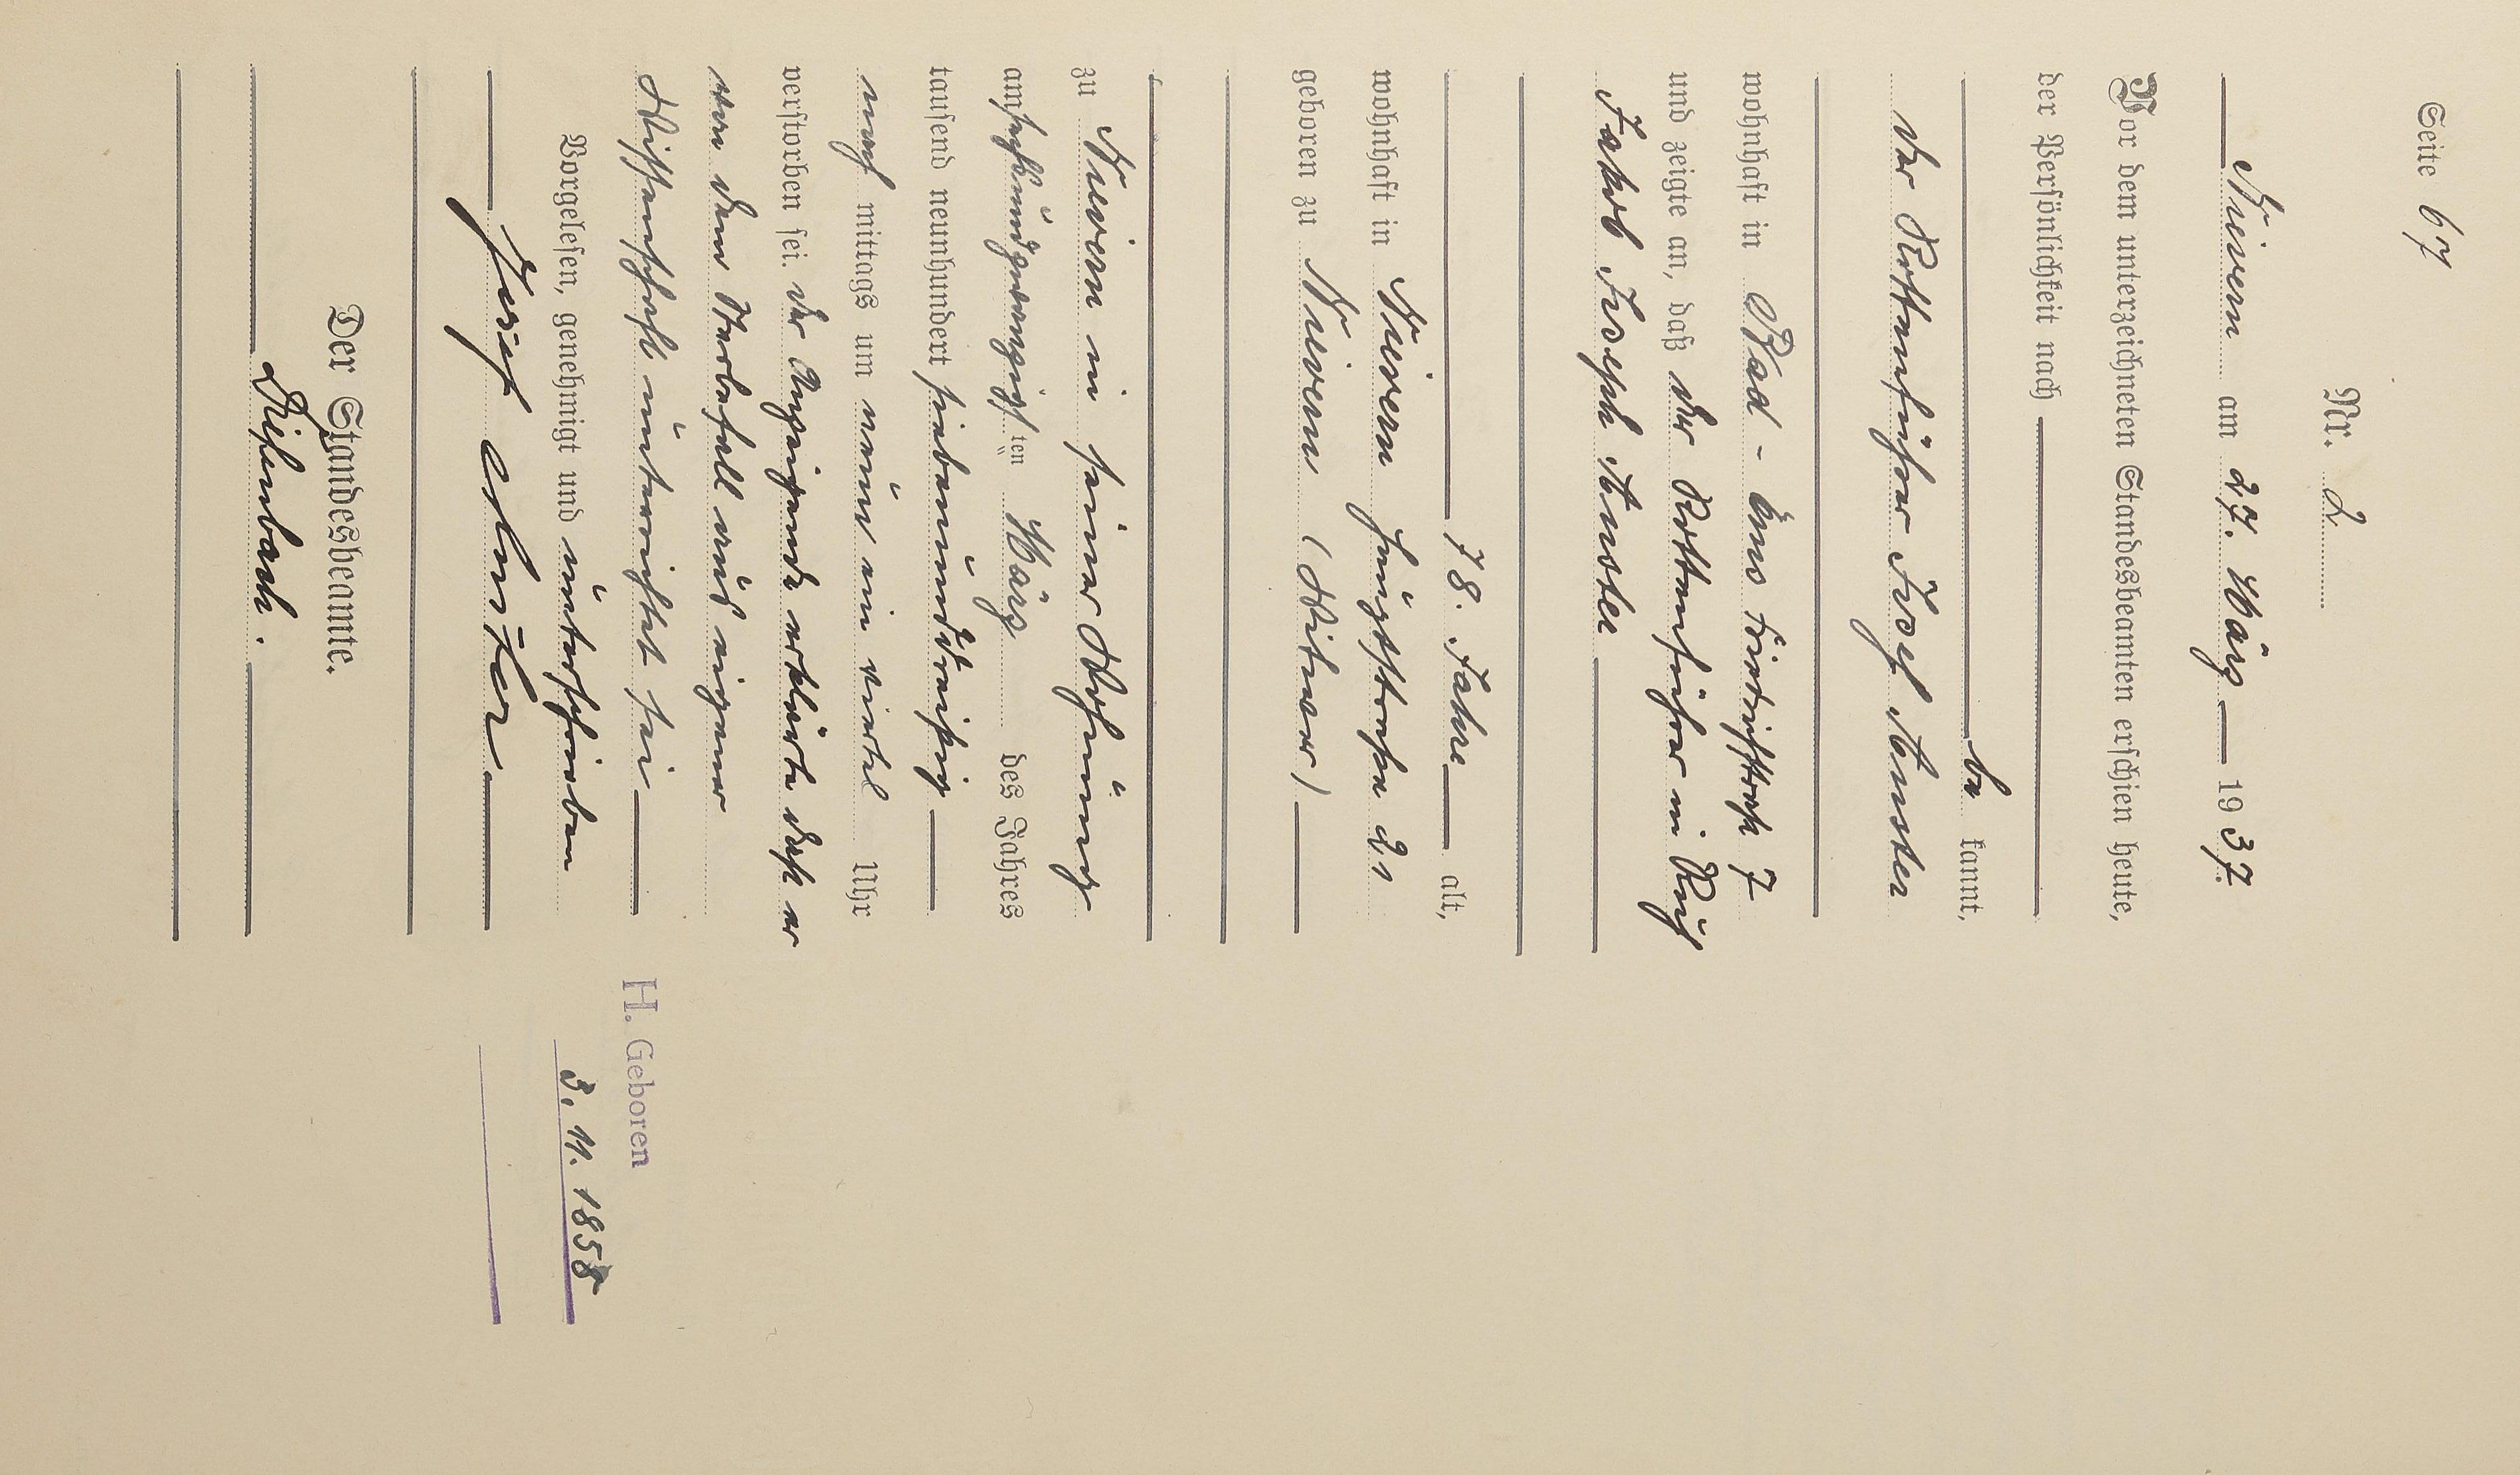 Seite 67
Nr. 2
Nievern am 27. März 1937.
Vor dem unterzeichneten Standesbeamten erschien heute,
der Persönlichkeit nach
be kannt,
der Rottenführer Josef Anster
wohnhaft in Bad-Ems 7
und zeigte an, daß der Rottenführer in Ruh
Jakob Joseph Anster
78. Jahre alt,
wohnhaft in Nievern Hauptstraße 21
geboren zu Nievern (Witwer)
zu Nievern in seiner Wohnung
am sechsundzwanzigsten März des Jahres
tausend neunhundert siebenunddreißig
nach mittags um neun ein viertel Uhr
verstorben sei. Der Anzeigende erklärte daß er
von dem Sterbefall aus eigener
Wissenschaft unterrichtet sei
Vorgelesen, genehmigt und unterschrieben
Josef Anster
Der Standesbeamte.
H. Geboren
3. 11. 1858